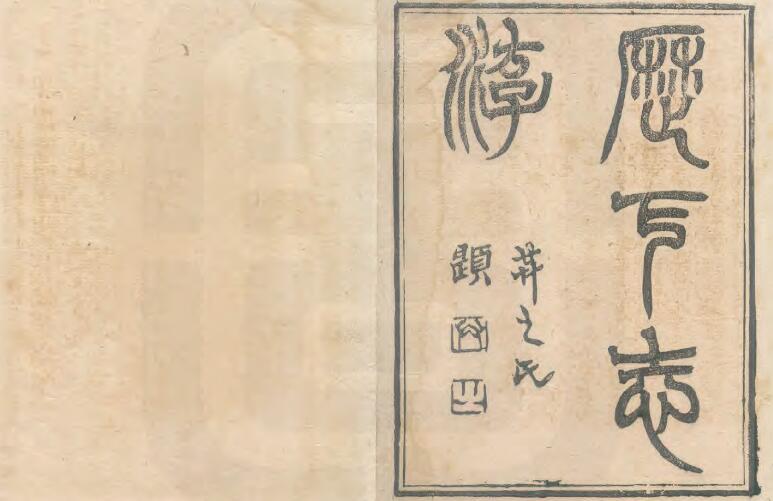 歷下志
游
之氏
題